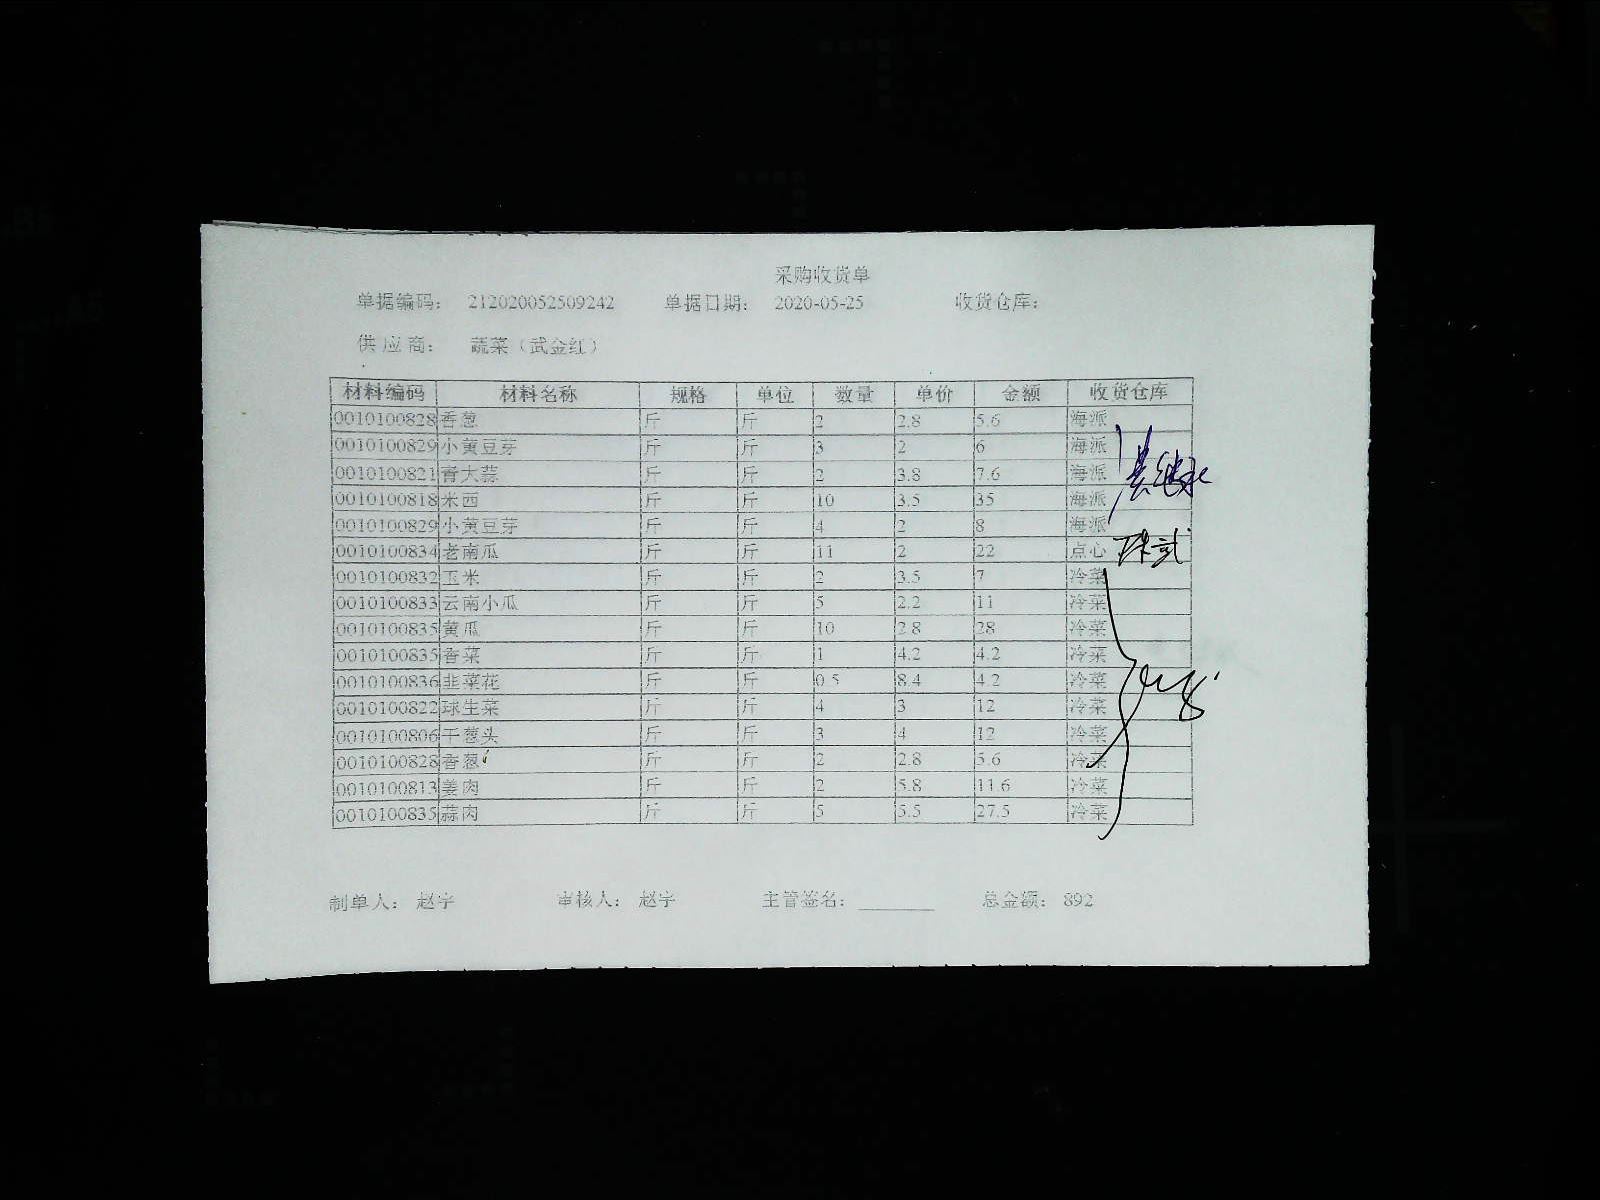 采购收货单
单据编码： 212020052509242 单据日期： 2020-05-25 收货仓库：
供应商： 蔬菜（武金红）
材料编码 材料名称 规格 单位 数量 单价 金额 收货仓库
0010100828 香葱 斤 斤 2 2.8 5.6 海派
0010100829 小黄豆芽 斤 斤 3 2 6 海派
0010100821 青大蒜 斤 斤 2 3.8 7.6 海派
0010100818 米西 斤 斤 10 3.5 35 海派
0010100829 小黄豆芽 斤 斤 4 2 8 海派
0010100834 老南瓜 斤 斤 11 2 22 点心
0010100832 玉米 斤 斤 2 3.5 7 冷菜
0010100833 云南小瓜 斤 斤 5 2.2 11 冷菜
0010100835 黄瓜 斤 斤 10 2.8 28 冷菜
0010100835 香菜 斤 斤 1 4.2 4.2 冷菜
0010100836 韭菜花 斤 斤 0.5 8.4 4.2 冷菜
0010100822 球生菜 斤 斤 4 3 12 冷菜
0010100806 干葱头 斤 斤 3 4 12 冷菜
0010100828 香葱 斤 斤 2 2.8 5.6 冷菜
0010100813 姜肉 斤 斤 2 5.8 11.6 冷菜
0010100835 蒜肉 斤 斤 5 5.5 27.5 冷菜
制单人： 赵宇 审核人： 赵宇 主管签名： 总金额： 892